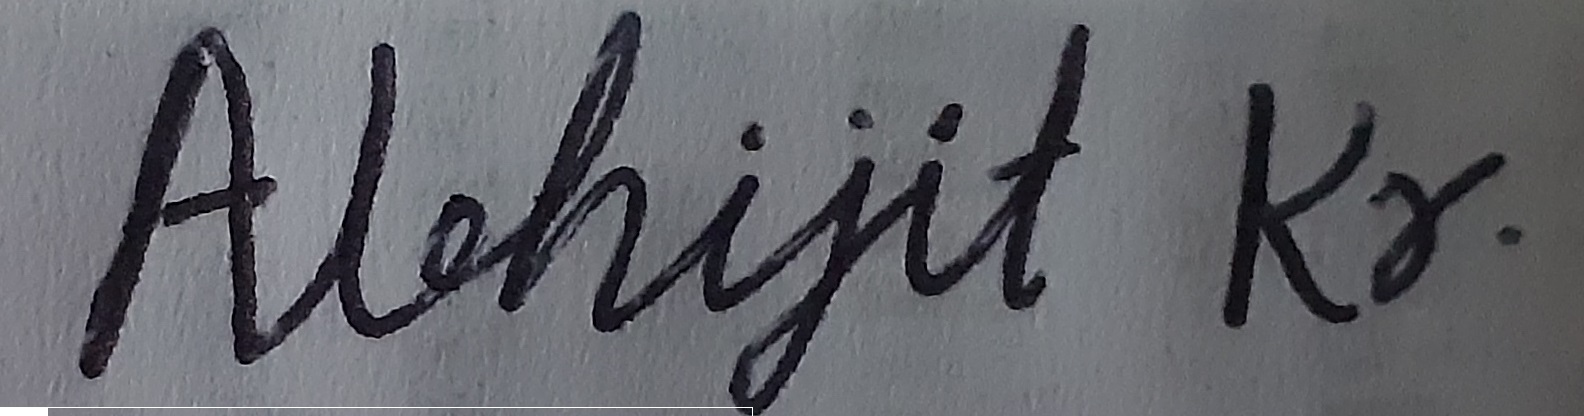 Abhijit Kr.